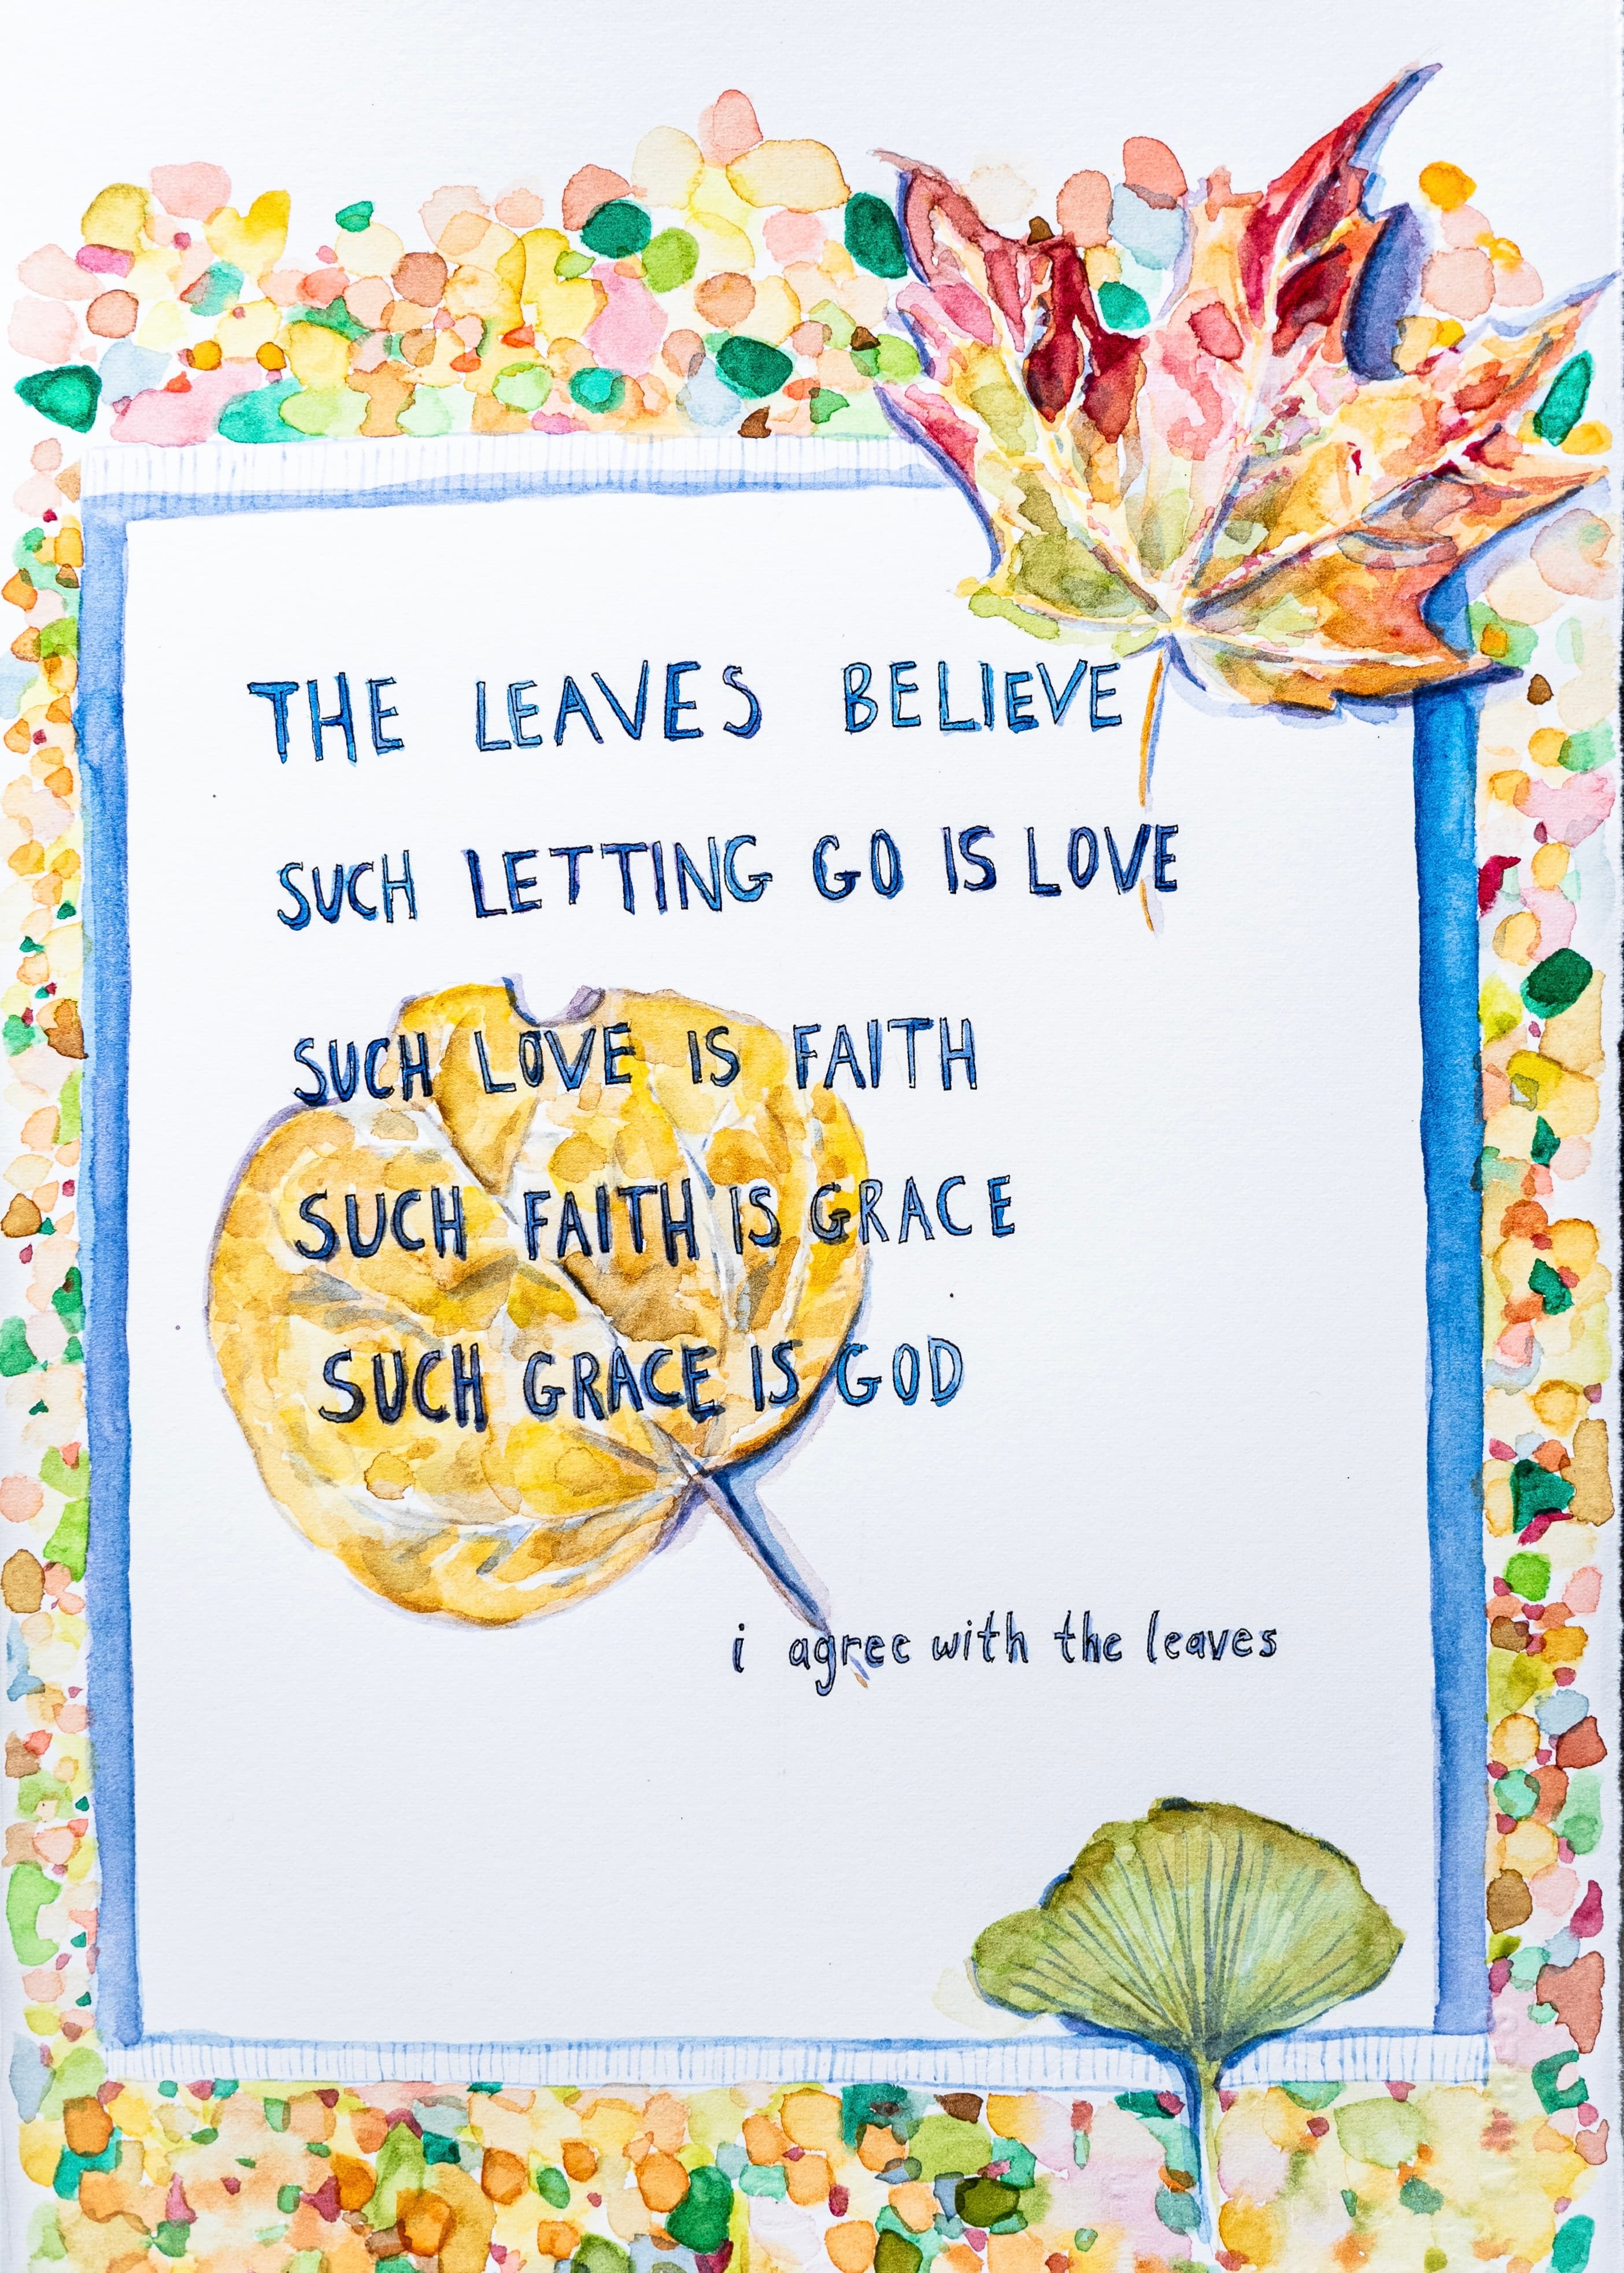 THE LEAVES BELIEVE
SUCH LETTING GO IS LOVE
SUCH LOVE IS FAITH
SUCH FAITH IS GRACE
SUCH GRACE IS GOD
i agree with the leaves